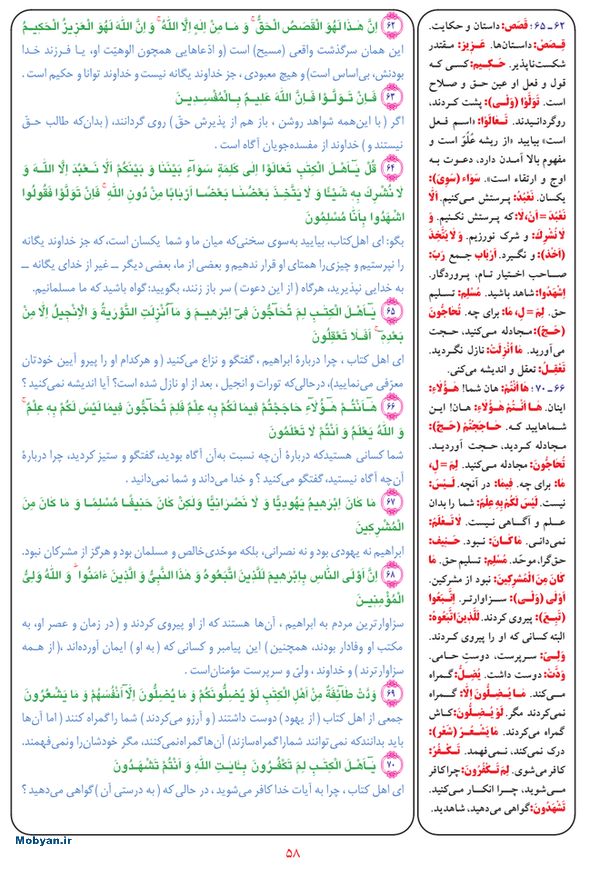 ۶۲ اِنَّ هٰذا لَهُوَ الْقَصَصُ الْحَقُّ ۚ وَ مَا مِنْ اِلٰهٍ اِلَّا اللّٰهُ ۚ وَ اِنَّ اللّٰهَ لَهُوَ الْعَزيزُ الْحَكيمُ
این همان سرگذشت واقعی (مسیح) است (و ادّعاهایی همچون الوهیّت او، یـا فـرزند خـدا
بودنش، بی‌اساس است) و هیچ معبودی ، جز خداوند یگانه نیست و خداوند توانا و حکیم است .
۶۳ فَـاِنْ تَـوَلَّـوْا فَـاِنَّ اللّٰهَ عَليمٌ بِـالْمُفْسِـديـنَ
اگر ( با این‌همه شواهد روشن ، باز هم از پذیرش حقّ ) روی گردانند، (بدان‌که طالب حـقّ
نیستند و ) خداوند از مفسده‌جویان آگاه است .
۶۴ قُلْ يـٰٓاَهْلَ الْكِتٰبِ تَعالَوْا اِلٰى كَلِمَةٍ سَوٰآءٍ بَيْنَنا وَ بَيْنَكُمْ اَلّا نَـعْبُدَ اِلَّا اللّٰهَ وَ
لا نُشْرِكَ بِهِ شَيْئًا وَ لا يَتَّخِذَ بَعْضُـنا بَعْضًـا اَرْبابًا مِنْ دُونِ اللّٰهِ ۚ فَاِنْ تَوَلَّوْا فَقُولُوا
اشْهَدُوا بِاَنّا مُسْلِمُونَ
بگو: ای اهل‌کتاب، بیایید به‌سوی سخنی‌که میان ما و شما یکسان است،که جز خداوند یگانه
را نپرستیم و چیزی‌را همتای او قرار ندهیم و بعضی از ما، بعضی دیگر ــ غیر از خدای یگانه ــ
به خدایی نپذیرید، هرگاه ( از این دعوت ) سر باز زنند، بگویید: گواه باشید که ما مسلمانیم.
۶۵ يـٰٓاَهْلَ الْكِتٰبِ لِمَ تُحٰٓاجُّونَ فيۤ اِبْرٰهيمَ وَ مٰآ اُنْزِلَتِ التَّوْرٰيةُ وَ الْاِنْجيلُ اِلّا مِنْ
بَعْدِهِ ۚ اَفَـلا تَعْقِلُونَ
ای اهل کتاب ، چرا دربارهٔ ابراهیم ، گفتگو و نزاع می‌کنید ( و هرکدام او را پیرو آیین خودتان
معرّفی می‌نمایید)، درحالی‌که تورات و انجیل ، بعد از او نازل شده است؟ آیا اندیشه نمی‌کنید ؟
۶۶ هٰـٓاَنْتُمْ هٰٓؤُلٰٓاءِ حاجَجْتُمْ فيما لَكُمْ بِهِ عِلْمٌ فَلِمَ تُحٰٓاجُّونَ فيما لَيْسَ لَكُمْ بِهِ عِلْمٌ ۚ
وَ اللّٰهُ يَعْلَمُ وَ اَنْتُمْ لا تَعْلَمُونَ
شما کسانی هستیدکه دربارهٔ آن‌چه نسبت به‌آن آگاه بودید، گفتگو و ستیز کردید، چرا دربارهٔ
آن‌چه آگاه نیستید، گفتگو می‌کنید ؟ و خدا می‌داند و شما نمی‌دانید .
۶۷ مَا كانَ اِبْرٰهيمُ يَهُوديًّا وَ لا نَصْرانيًّا وَلٰكِنْ كانَ حَنيفًا مُسْلِمًا وَ مَا كانَ مِنَ
الْمُشْرِكينَ
ابراهیم نه یهودی بود و نه نصرانی، بلکه موحّدی‌خالص و مسلمان بود و هرگز از مشرکان نبود.
۶۸ اِنَّ اَوْلَى النّاسِ بِاِبْرٰهيمَ لَلَّذينَ اتَّبَعُوهُ وَ هٰذَا النَّبِىُّ وَ الَّذينَ ءٰامَنُوا ۗ وَ اللّٰهُ وَلِىُّ
الْمُؤْمِنينَ
سزاوارترین مردم به ابراهیم ، آن‌ها هستند که از او پیروی کردند و ( در زمان و عصر او، به
مکتب او وفادار بودند، همچنین ) این پیامبر و کسانی که ( به او ) ایمان آورده‌اند ،( از همه
سزاوارترند ) و خداوند ، ولیّ و سرپرست مؤمنان‌است .
۶۹ وَدَّتْ طٰآئِفَةٌ مِنْ اَهْلِ الْكِتٰبِ لَوْ يُضِلُّونَكُمْ وَ مَا يُضِلُّونَ اِلّٰآ اَنْفُسَهُمْ وَ مَا يَشْعُرُونَ
جمعی از اهل کتاب ( از یهود) دوست داشتند ( و آرزو می‌کردند) شما را گمراه کنند ( اما آن‌ها
باید بدانندکه نمی‌توانند شماراگمراه‌سازند) آن‌هاگمراه‌نمی‌کنند، مگر خودشان‌را ونمی‌فهمند.
۷۰ يـٰٓاَهْلَ الْكِتٰبِ لِمَ تَكْفُرُونَ بِـٔايٰتِ اللّٰهِ وَ اَنْتُمْ تَشْهَدُونَ
ای اهل کتاب ، چرا به آیات خدا کافر می‌شوید ، در حالی که ( به درستی آن ) گواهی می‌دهید ؟
۶۲ ـ ۶۵ : قَصَص: داستان و حکایت.
قِصَص: داستان‌ها. عَزیز: مـقتدر
شکست‌ناپذیر. حَـکیم: کسی که
قول و فعل او عین حق و صـلاح
است. تَوَلَّوْا (وَلّی): پشت کـردند،
روگردانیدند. تَـعالَوْا: «اسم فـعل
است» بیایید «از ریشه عُلُوّ است و
مفهوم بالا آمدن دارد، دعوت به
اوج و ارتقاء است». سَوٰاء (سَوِیَ):
یکسان. نَعْبُدُ: پرستش می‌کنیم. اَلّا
نَعْبُدَ = اَنْ،لا: که پرستش نکنیم. وَ
لا نُشْرِكَ: و شرک نورزیم. وَ لا یَتَّخِذَ
(اَخَذَ): و نگیرد. اَرْباب جـمع رَبّ:
صـاحب اختیار تـام، پـروردگار.
اِشْهَدُوا: شاهد باشید. مُسْلِم: تسلیم
حق. لِمَ = لِ، ما: برای چه. تُحٰاجُّونَ
(حَـجّ): مـجادله می‌کنید، حـجت
می‌آورید. مٰا اُنْزِلَتْ: نازل نگردید.
تَعْقِلُ: تعقل و اندیشه می‌کنی.
۶۶ ـ ۷۰ : هٰا اَنْتُمْ: هان شما! هٰـؤُلٰاءِ:
اینان. هٰـا اَنْـتُمْ هٰـؤُلٰاءِ: هان! این
شمـاهایید کـه. حـاجَجْتُمْ (حَـجّ):
مـجادله کـردید، حـجت آوردیـد.
تُحٰاجُّونَ: مجادله می‌کنید. لِمَ = لِ،
مٰا: برای چه. فیمٰا: در آنچه. لَـیْسَ:
نیست. لَیْسَ لَکُمْ بِهِ عِلْمٌ: شما را بدان
عـلـم و آگـاهی نیـست. لا تَـعْلَمُ:
نمی‌دانی. مٰا کـانَ: نبود. حَـنیف:
حق‌گرا،موحّد. مُسْلِم: تسلیم حق. مٰا
کانَ مِنَ الْمُشْرِکینَ: نبود از مشرکین.
اَوْلٰی (وَلْی): سـزاوارتـر. اِتَّـبَعُوا
(تَبِعَ): پیروی کردند. لَلَّذینَ اتَّبَعُوهُ:
البته کسانی که او را پیروی کـردند.
وَلِیّ: سـرپرست، دوستِ حـامی.
وَدَّتْ: دوست داشت. یُضِلُّ: گـمراه
می‌کـند. مٰـا یُـضِلُّونَ اِلّا: گـمراه
نمی‌کردند مگر. لَوْ یُضِلُّونَ: کـاش
گمراه می‌کردند. مٰا یَشْـعُرُ (شَعَرَ):
درک نمی‌کند، نمی‌فهمد. تَـکْفُرُ:
کافر می‌شوی. لِمَ تَکْفُرُونَ: چرا کافر
می‌شوید، چـرا انـکار می‌کنید.
تَشْهَدُونَ: گواهی می‌دهید، شاهدید.
Mobyan.ir
۵۸